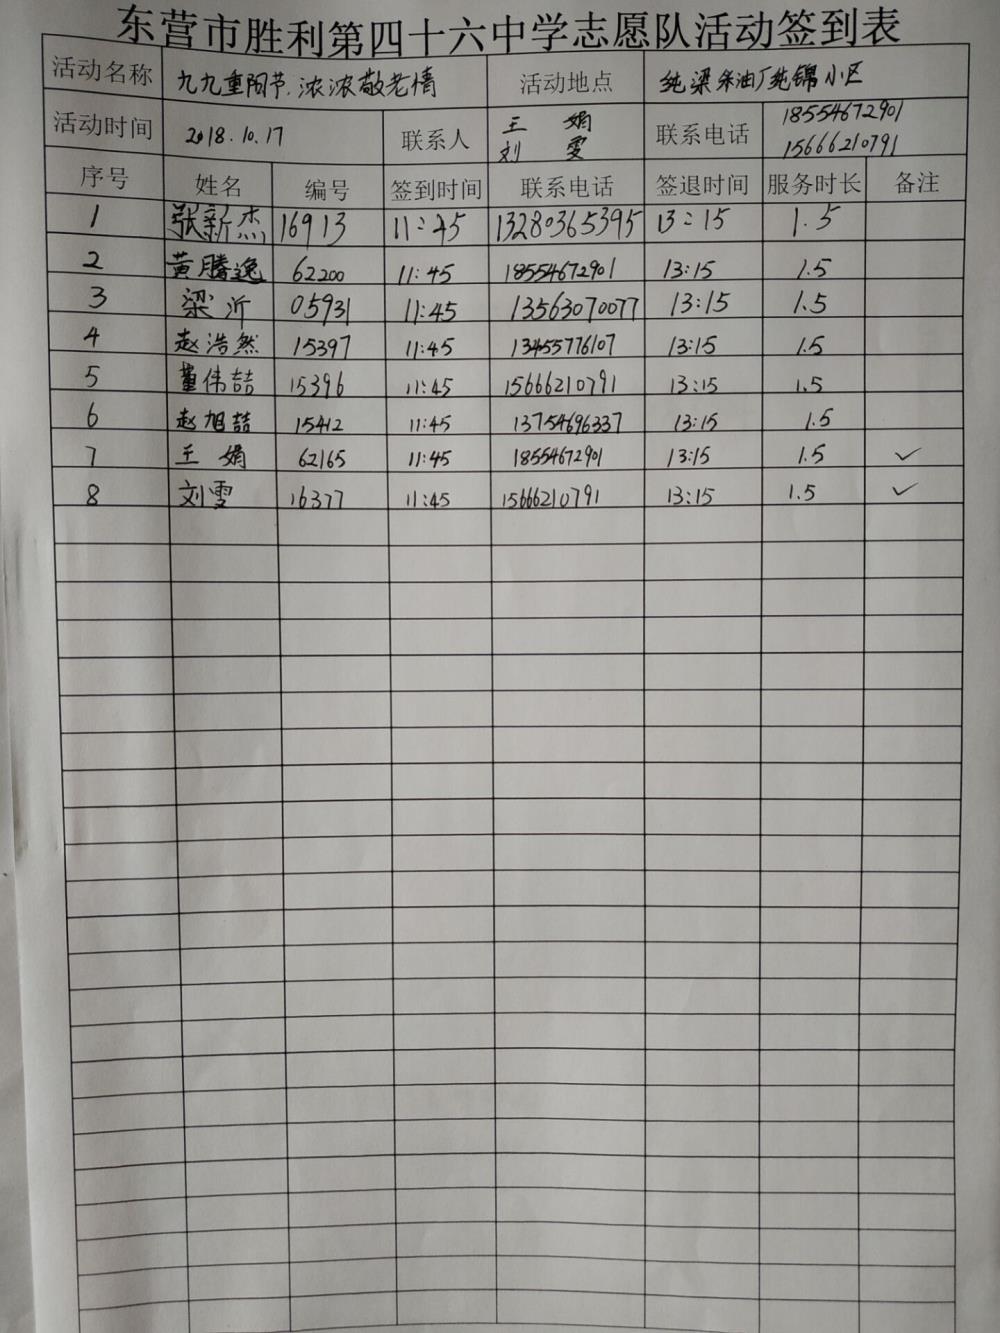 东营市胜利第四十六中学志愿队活动签到表
活动名称 九九重阳节.浓浓敬老情 活动地点 纯梁采油厂纯锦小区
活动时间 2018.10.17 联系人 王娟 刘雯 联系电话 18554672901 15666210791
序号 姓名 编号 签到时间 联系电话 签退时间 服务时长 备注
1 张新杰 16913 11:45 13280365395 13:15 1.5
2 黄腾逸 62200 11:45 18554672901 13:15 1.5
3 梁沂 05931 11:45 13563070077 13:15 1.5
4 赵浩然 15397 11:45 13455776107 13:15 1.5
5 董伟喆 15396 11:45 15666210791 13:15 1.5
6 赵旭喆 15412 11:45 13754696337 13:15 1.5
7 王娟 62165 11:45 18554672901 13:15 1.5 ✓
8 刘雯 16377 11:45 15666210791 13:15 1.5 ✓